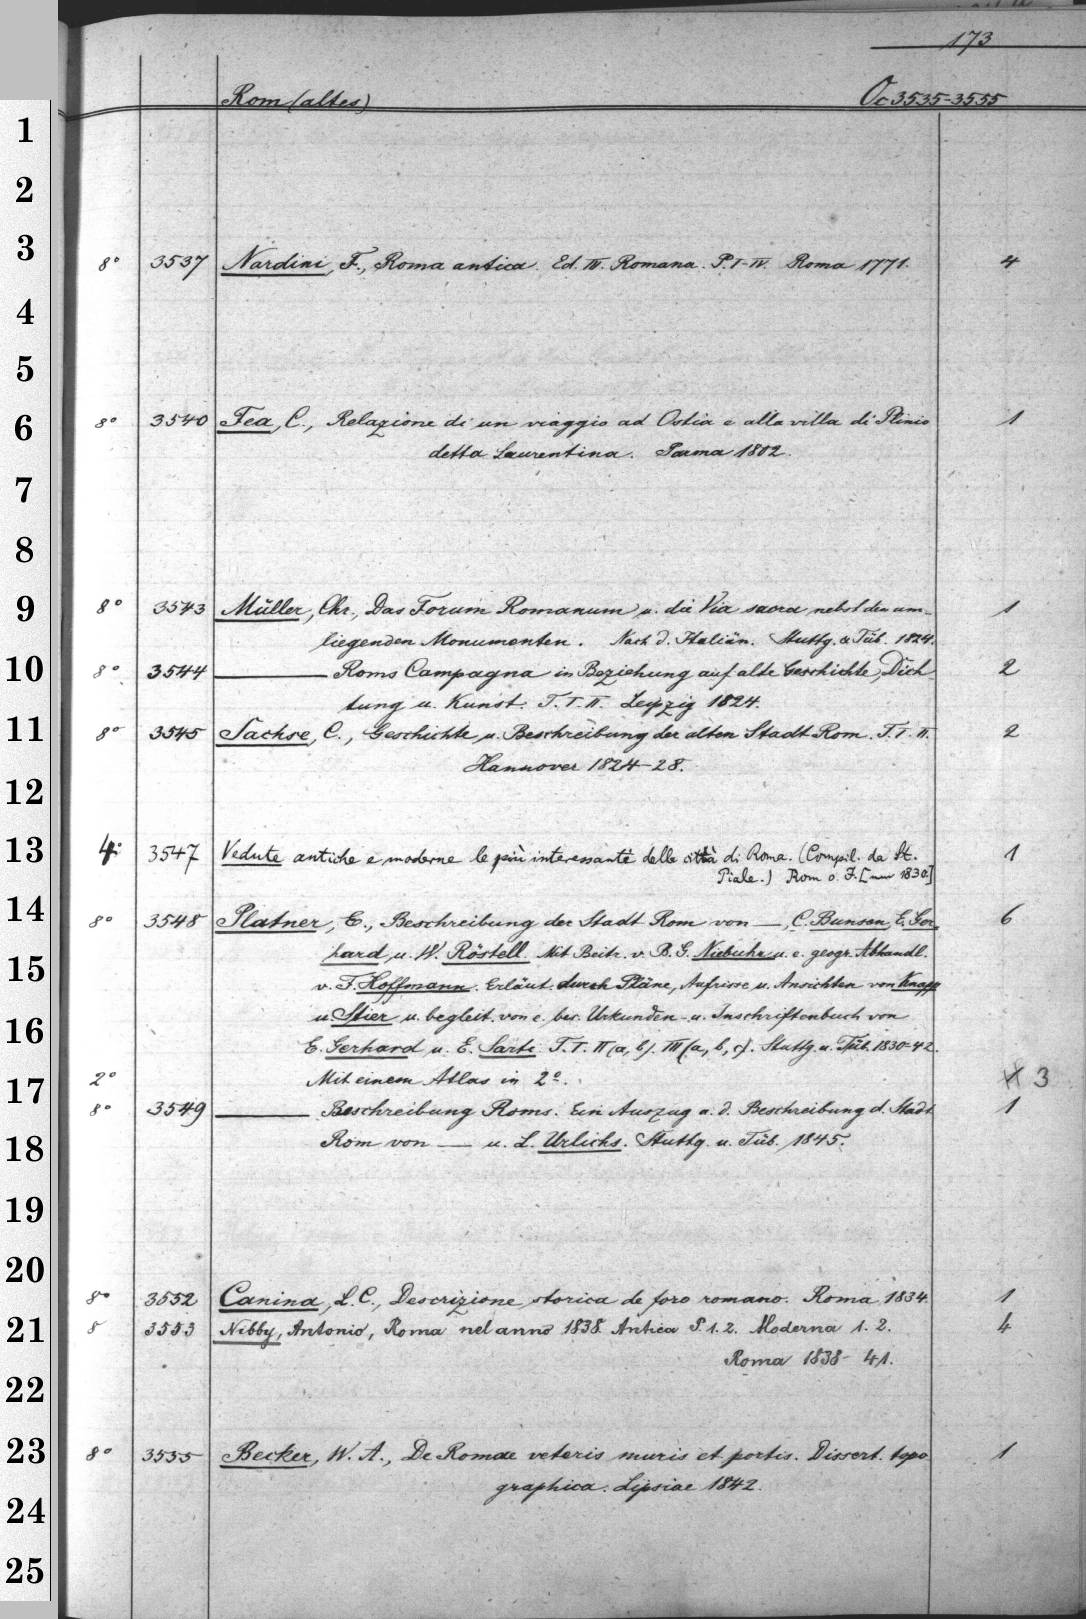 173
Rom (altes) Oc 3535-3555
1
2
3
8° 3537 Nardini, F., Roma antica. Ed. IV. Romana. P. I-IV. Roma 1771. 4
4
5
6
8° 3540 Fea, C., Relazione di un viaggio ad Ostia e alla villa di Plinio 1
detta Laurentina. Roma 1802.
7
8
9
8° 3543 Müller, Chr., Das Forum Romanum u. die Via sacra nebst den um- 1
liegenden Monumenten. Nach d. Italiän. Stuttg. & Tüb. 1824.
10
8° 3544 ——— Roms Campagna in Beziehung auf alte Geschichte, Dich- 2
tung u. Kunst. T. I. II. Leipzig 1824.
11
8° 3545 Sachse, C., Geschichte u. Beschreibung der alten Stadt Rom. T. I. II. 2
Hannover 1824-28.
12
13
4° 3547 Vedute antiche e moderne le più interessanti della città di Roma. (Compil. da St. 1
Piale.) Rom o. J. [um 1830.]
14
8° 3548 Platner, E., Beschreibung der Stadt Rom von —, C. Bunsen, E. Ger- 6
hard, u. W. Röstell. Mit Beitr. v. B. G. Niebuhr u. e. geogr. Abhandl.
15
v. F. Hoffmann. Erläut. durch Pläne, Aufrisse u. Ansichten von Knapp
u. Stier u. begleit. von e. bes. Urkunden- u. Inschriftenbuch von
16
E. Gerhard u. E. Sarti. T. I. II (a, b). III (a, b, c). Stuttg. u. Tüb. 1830-42.
17
2° Mit einem Atlas in 2°. 3
8° 3549 ——— Beschreibung Roms. Ein Auszug a. d. Beschreibung d. Stadt 1
18
Rom von — u. L. Urlichs. Stuttg. u. Tüb. 1845.
19
20
8° 3552 Canina, L. C., Descrizione storica de foro romano. Roma 1834. 1
21
8 3553 Nibby, Antonio, Roma nel anno 1838. Antica P. 1. 2. Moderna 1. 2. 4
Roma 1838-41.
22
23
8° 3555 Becker, W. A., De Romae veteris muris et portis. Dissert. topo 1
graphica. Lipsiae 1842.
24
25